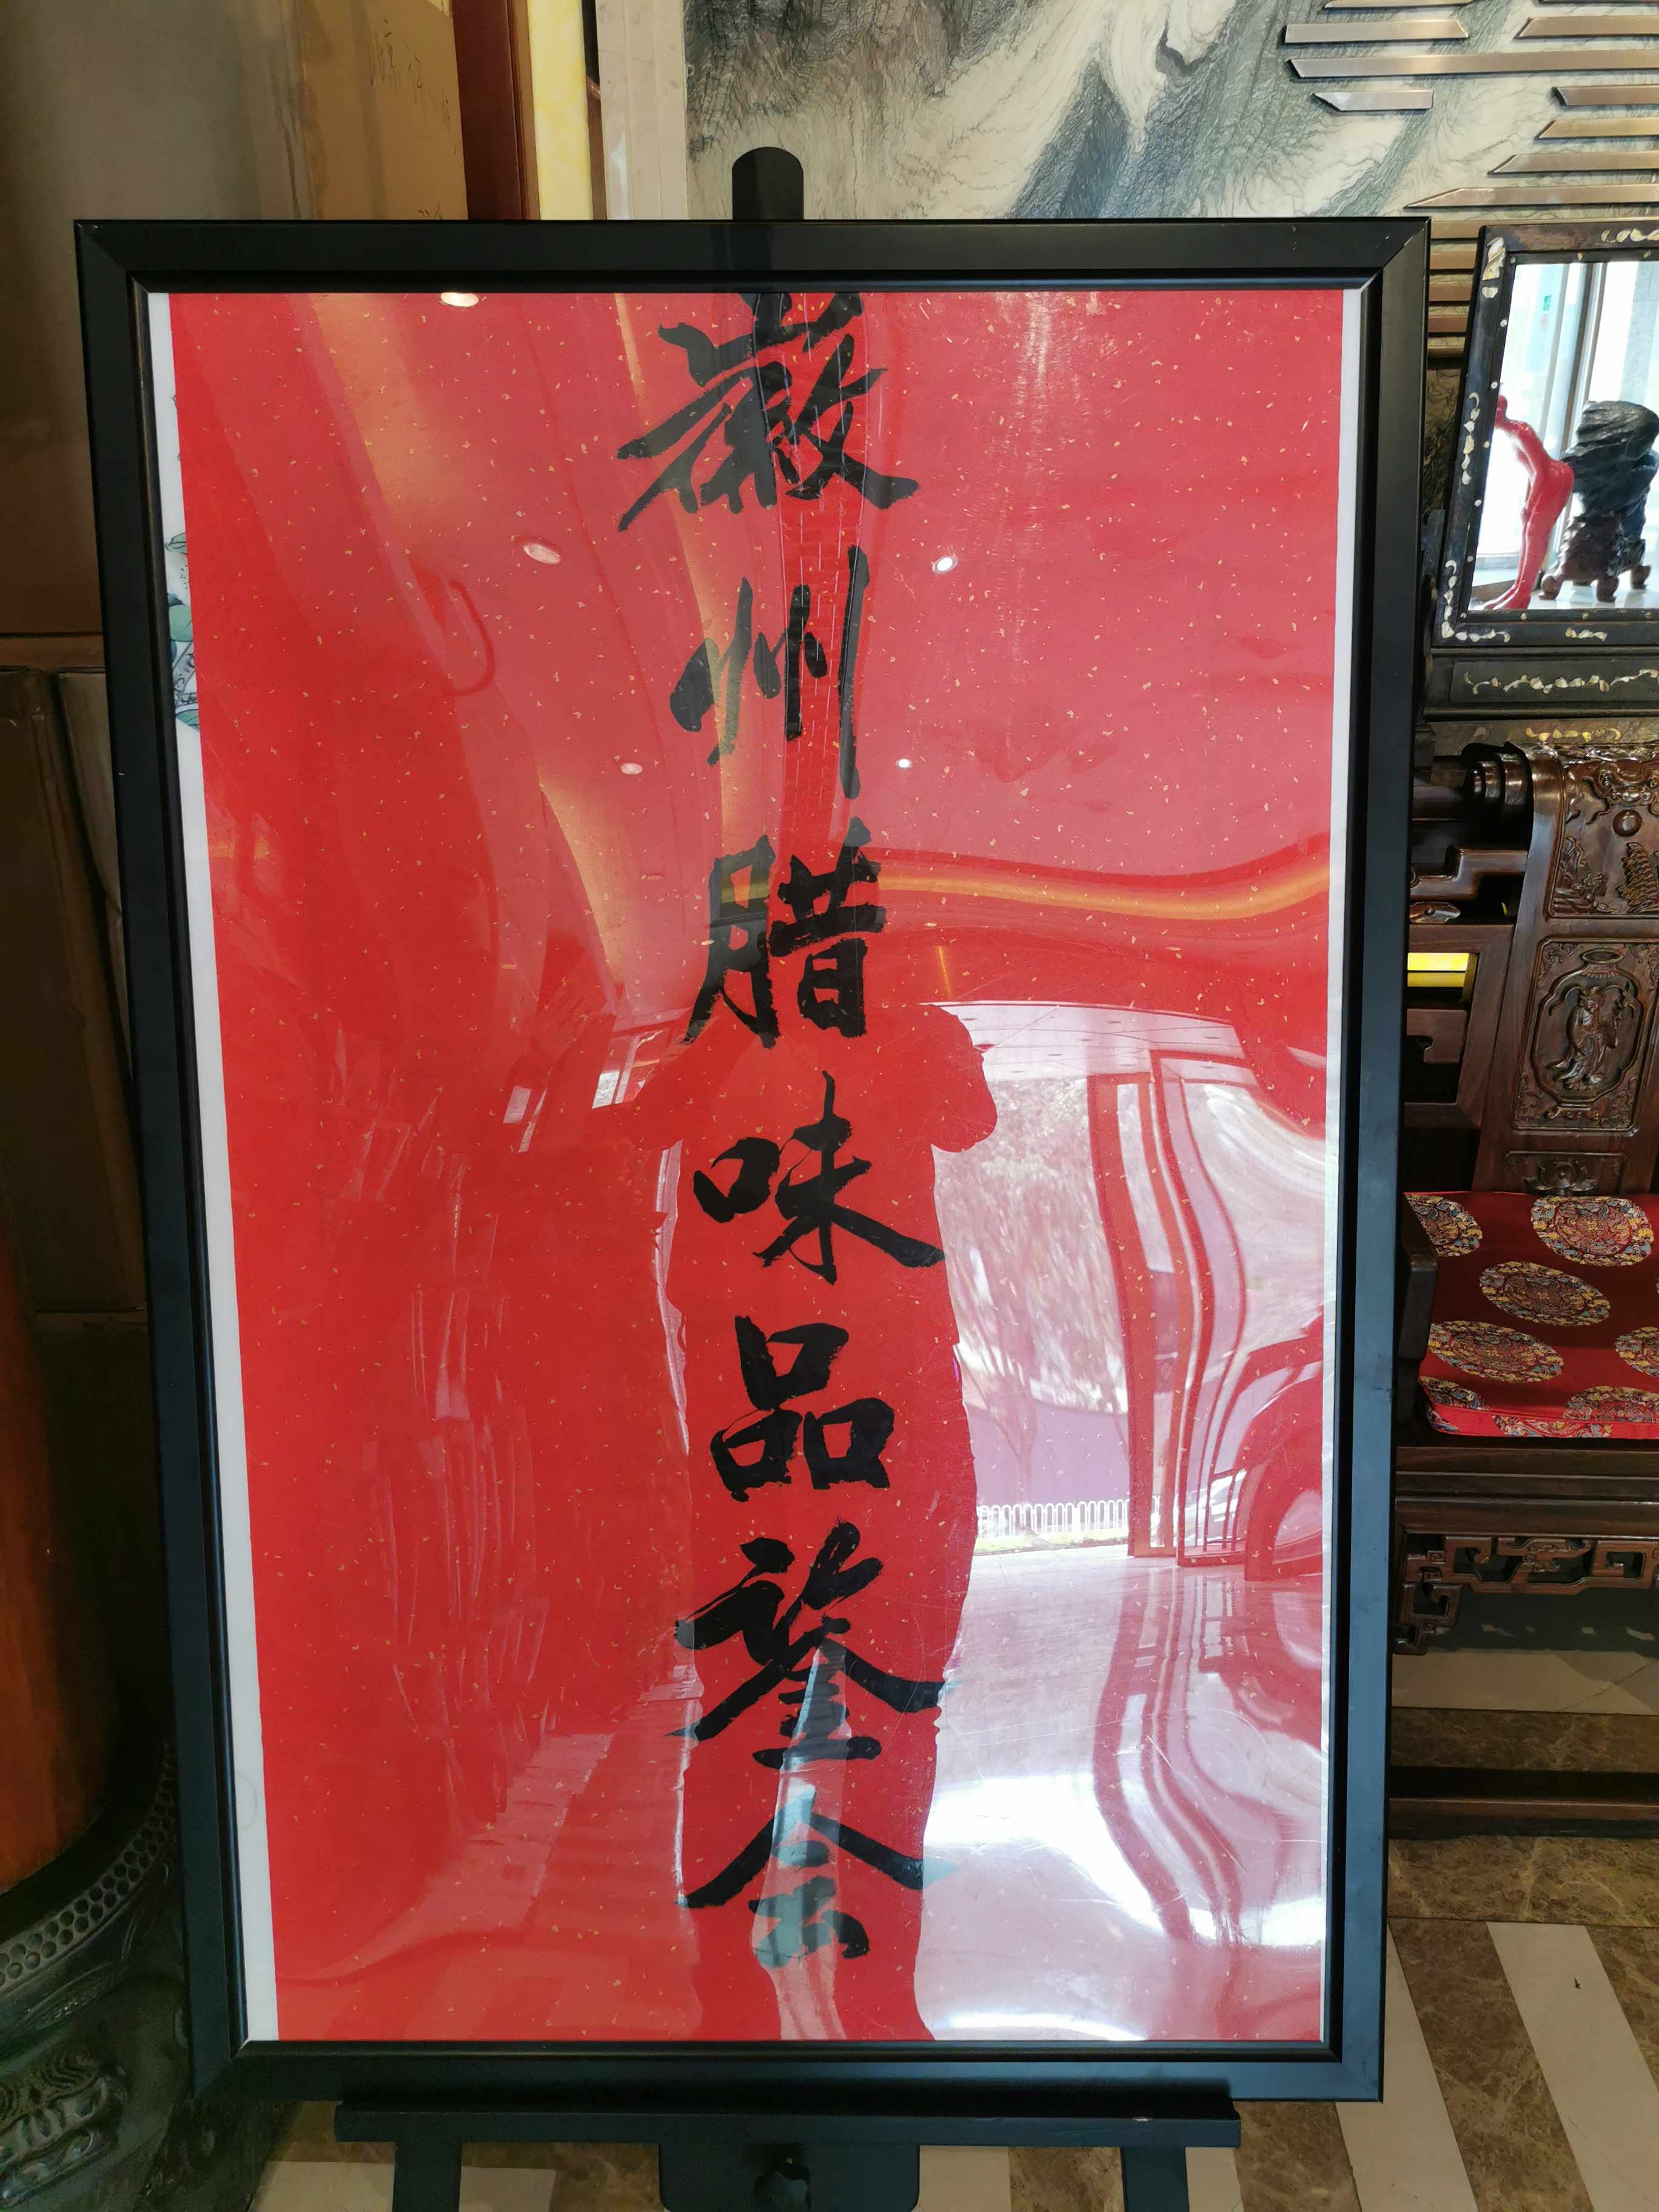 徽州腊味品鉴会